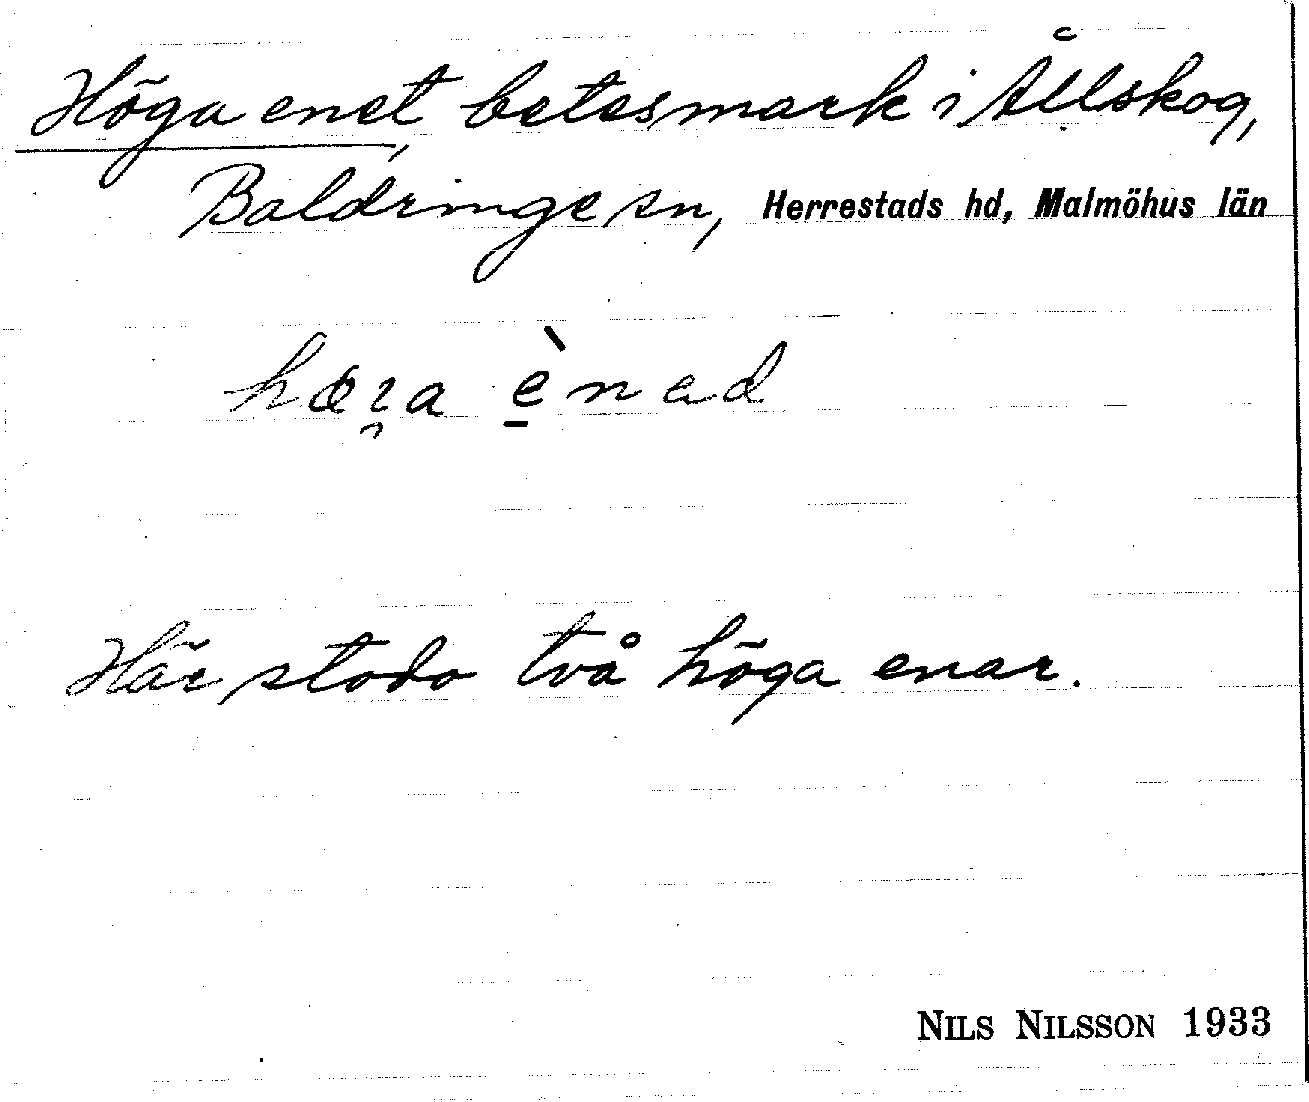 Höga enet, betesmark i Ållskog,
Baldringe sn, Herrestads hd, Malmöhus län
Här stodo två höga enar.
NILS NILSSON 1933